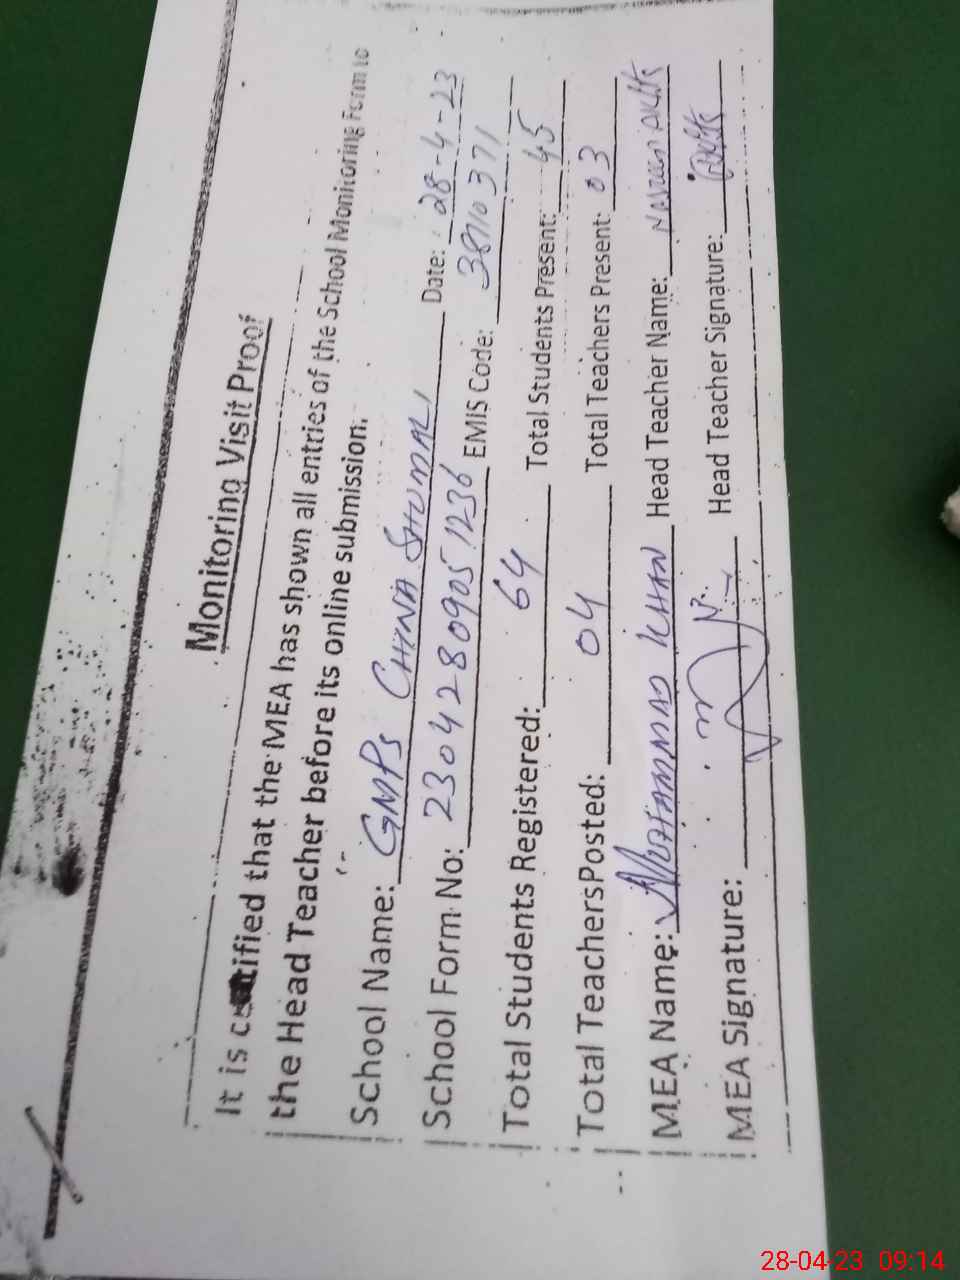 Monitoring Visit Proof
It is certified that the MEA has shown all entries of the School Monitoring Form to
the Head Teacher before its online submission.
School Name: GMPS CHINA SHUMALI Date: 28-4-23
School Form No: 23042809051236 EMIS Code: 38110371
Total Students Registered: 64 Total Students Present: 45
Total Teachers Posted: 04 Total Teachers Present: 03
MEA Name: MUHAMMAD KHAN Head Teacher Name:
MEA Signature: Head Teacher Signature:
28-04-23 09:14